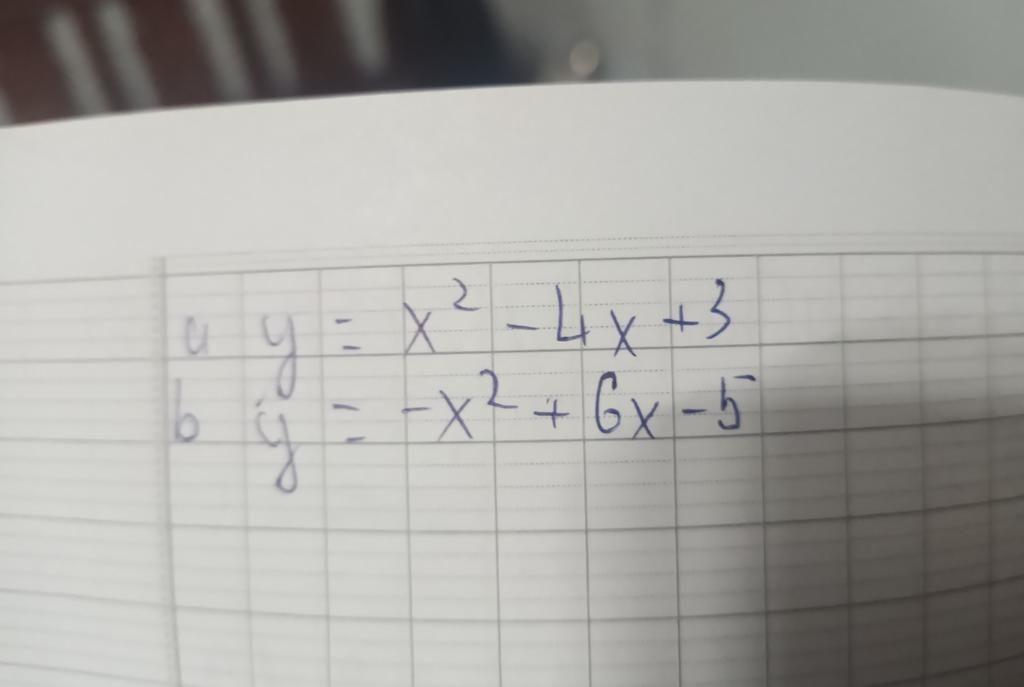 a y = x² - 4x + 3
b y = -x² + 6x - 5